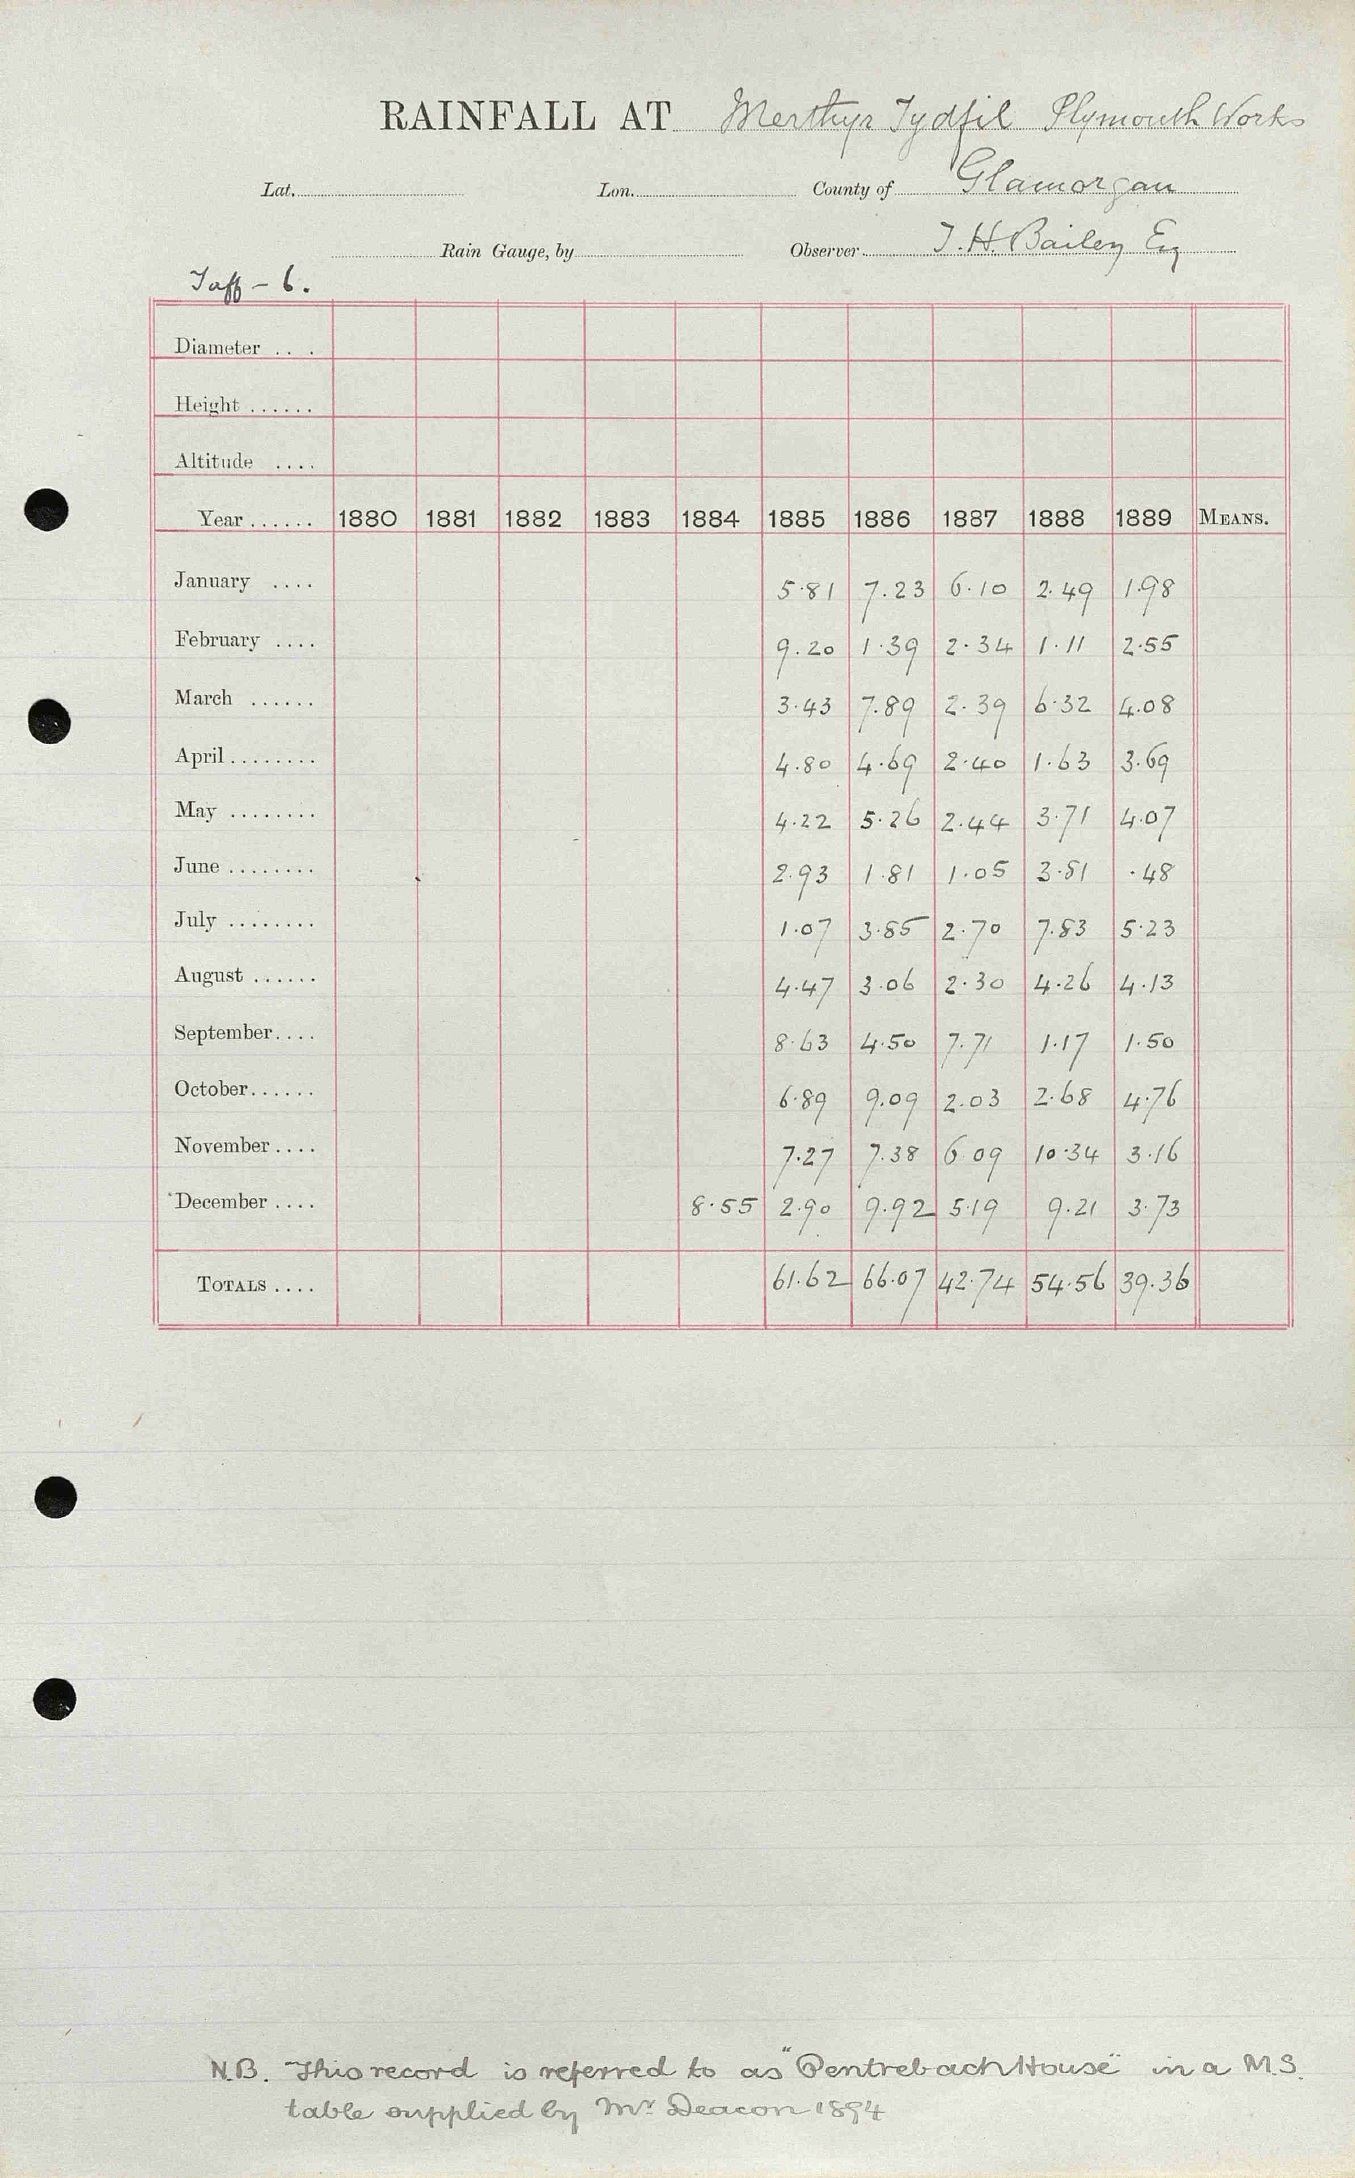 RAINFALL AT Merthyr Tydfil Plymouth Works
Lat. Lon. County of Glamorgan
Rain Gauge, by Observer T. H. Bailey Esq
Taff - 6.
Diameter . . .
Height ......
Altitude ....
Year ...... 1880 1881 1882 1883 1884 1885 1886 1887 1888 1889 MEANS.
January .... 5.81 7.23 6.10 2.49 1.98
February .... 9.20 1.39 2.34 1.11 2.55
March ...... 3.43 7.89 2.39 6.32 4.08
April ........ 4.80 4.69 2.40 1.63 3.69
May ........ 4.22 5.26 2.44 3.71 4.07
June ........ 2.93 1.81 1.05 3.81 .48
July ........ 1.07 3.85 2.70 7.83 5.23
August ...... 4.47 3.06 2.30 4.26 4.13
September.... 8.63 4.50 7.71 1.17 1.50
October...... 6.89 9.09 2.03 2.68 4.76
November .... 7.27 7.38 6.09 10.34 3.16
December .... 8.55 2.90 9.92 5.19 9.21 3.73
TOTALS .... 61.62 66.07 42.74 54.56 39.36
N.B. This record is referred to as "Pentrebach House" in a M.S.
table supplied by Mr Deacon 1894